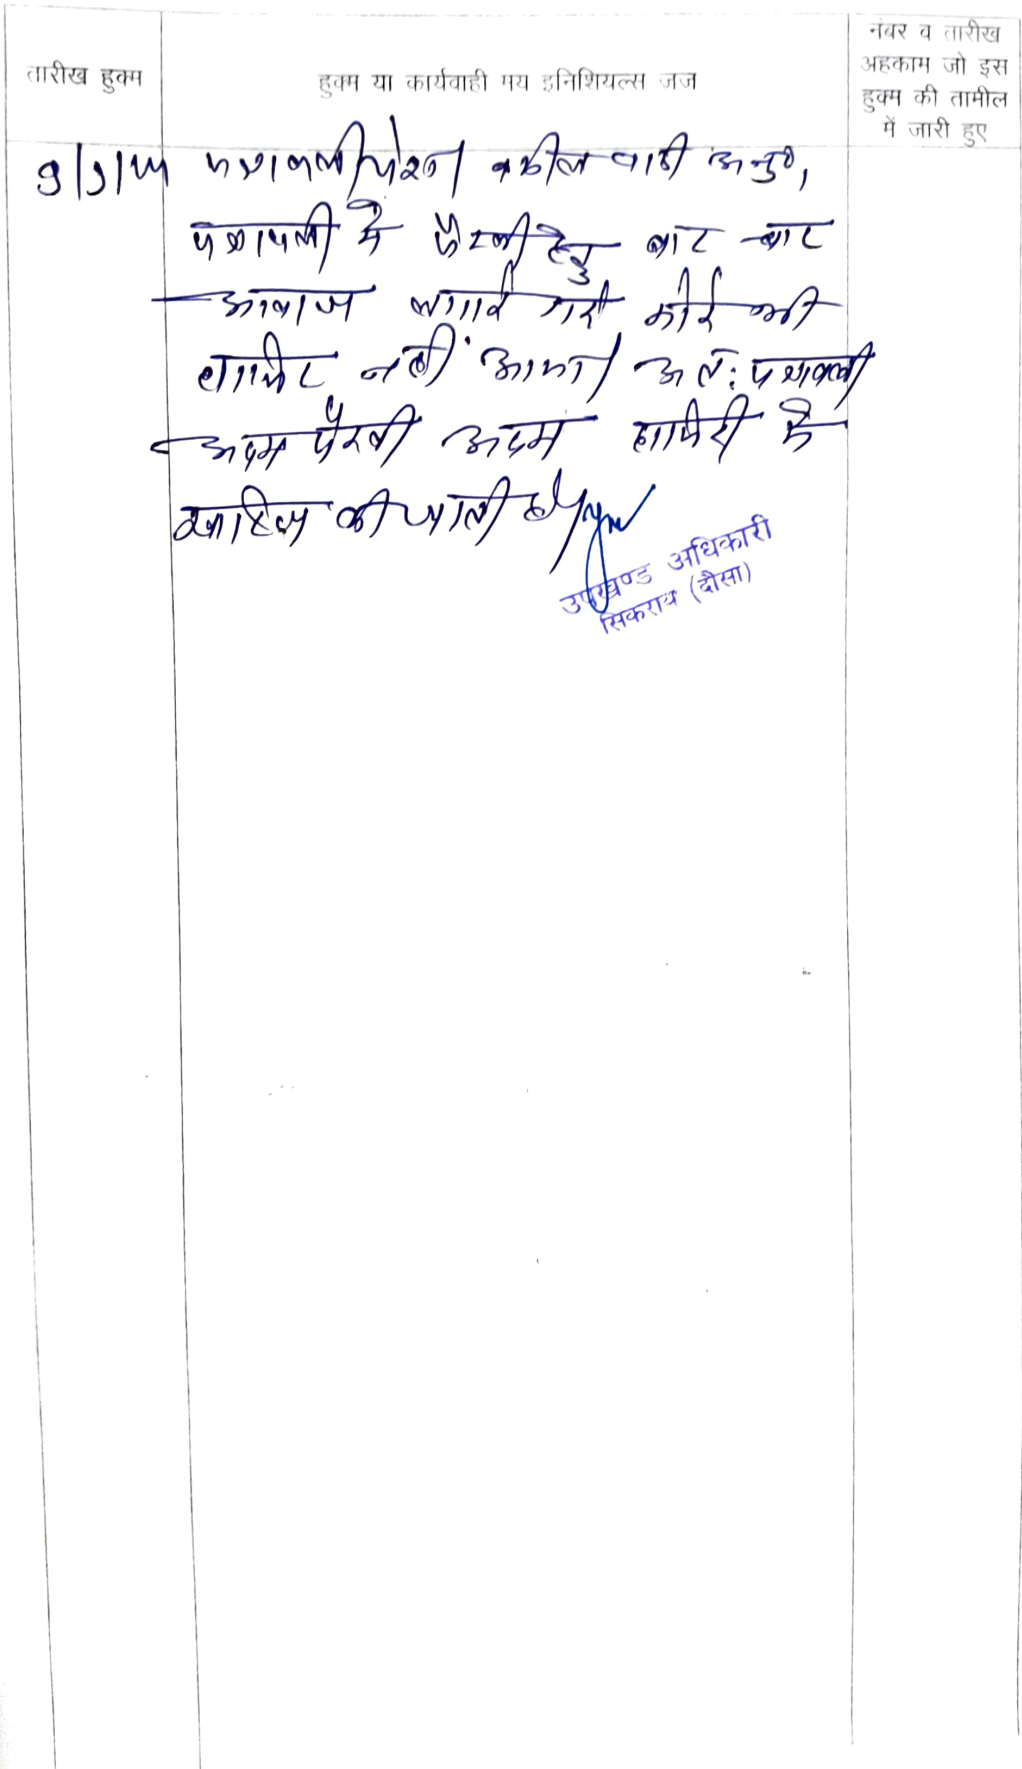 तारीख हुक्म
हुक्म या कार्यवाही मय इनिशियल्स जज
नंबर व तारीख
अहकाम जो इस
हुक्म की तामील
में जारी हुए
पत्रावली पेश। वकील वादी अनु॰,
पत्रावली में पैरवी हेतु बार बार
आवाज लगाई गयी कोई भी
हाजिर नहीं आया। अत: पत्रावली
अदम पैरवी अदम हाजिरी में
खारिज की जाती है।
उपखण्ड अधिकारी
सिकराय (दौसा)